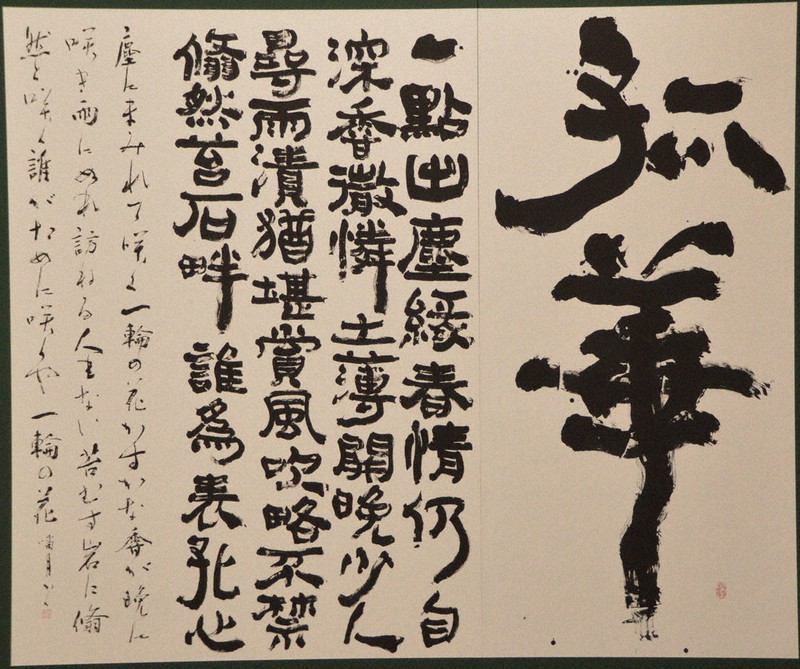 孤華
一點出塵緣春情仍自
深香微憐土薄開晩少人
尋雨漬猶堪賞風吹略不禁
翛然苔石畔誰為表孤心
塵にまみれて咲く一輪の花かすかな香が晩に
咲き雨にぬれ訪ねる人もない苔むす岩に翛
然と咲く誰がために咲くや一輪の花